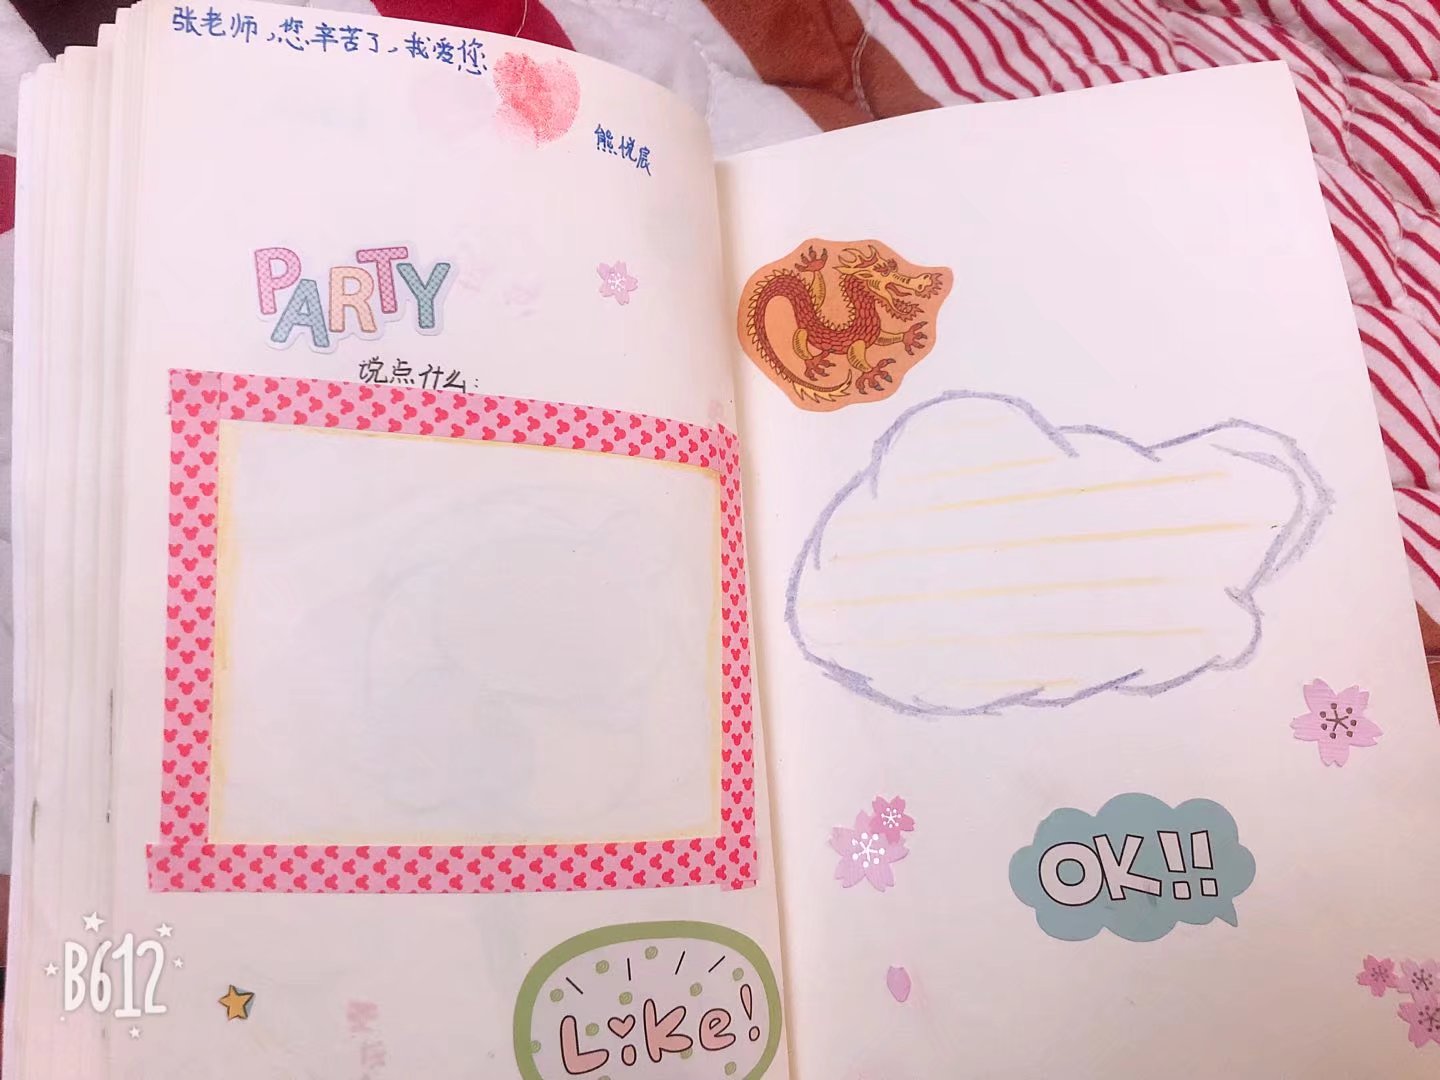 张老师,您辛苦了,我爱您
熊悦宸
PARTY
说点什么:
OK!!
Like!
B612